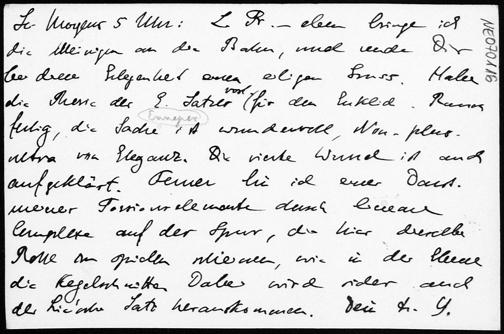 Morgens 5 Uhr: L. Fr. – eben bringe ich
die Meinigen an die Bahn, und sende Dir
bei dieser Gelegenheit einen eiligen Gruss. Habe
die Theorie des E. Satzes vorl. für den Euklid. Raum
Enneper
fertig, die Sache ist wundervoll, Non-plus-
ultra von Eleganz. Die vierte Wurzel ist auch
aufgeklärt. Ferner bin ich einer Darst.
meiner Torsionselemente durch lineare
Complexe auf der Spur, die hier dieselbe
Rolle zu spielen scheinen, wie in der Ebene
die Kegelschnitte. Dabei wird sicher auch
der Satz herauskommen. Dein tr.
NE070116